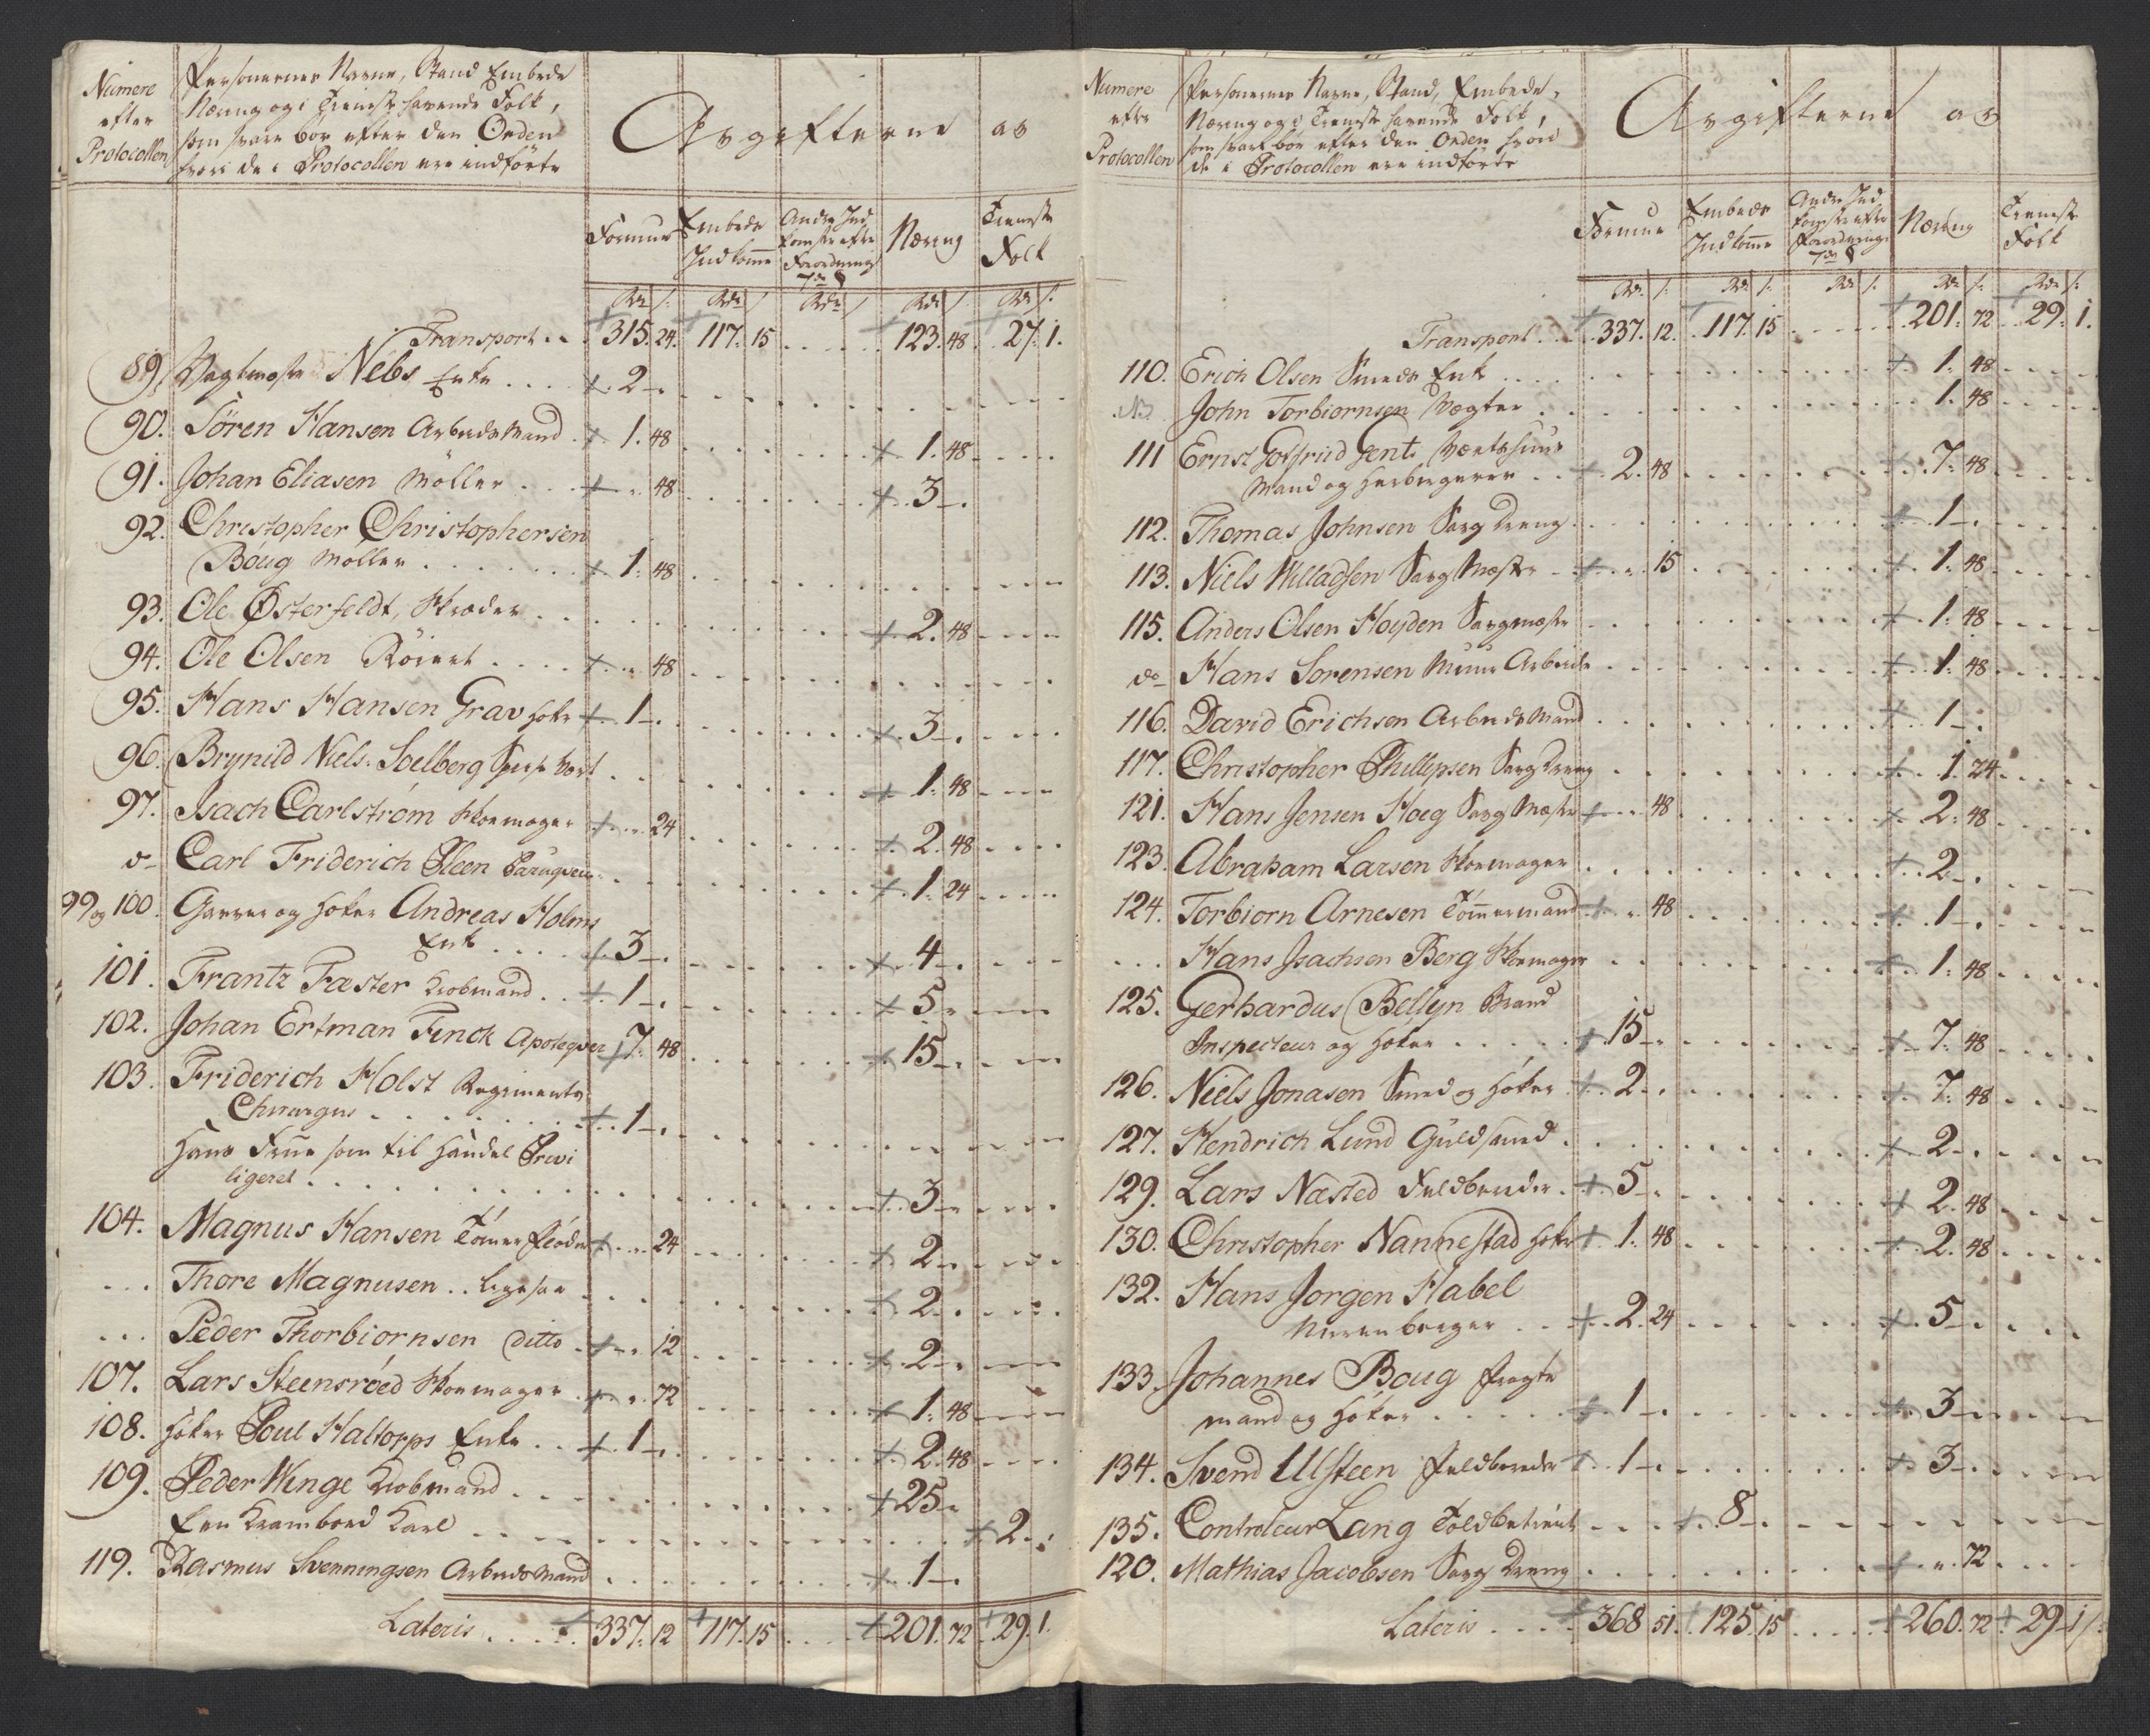 Numere efter Protocollen
Personernes Navne, Stand Embede
Næring og i Tieneste havende Folk,
som svare bør efter den Orden
hvori de i Protocollen ere indførte
Avgifterne av
Formue
Embeds Indkomme
Andre Ind komster efter Forordnings 7de §
Næring
Tieneste Folk
Rdr ſ: Rdr ſ Rdr ſ Rdr ſ: Rdr ſ:
Transport .. 315. 24. 117. 15 . . . . 123. 48. 27. 1.
89. Vagtmester Nebs Enke . . . 2 -.
90. Sören Hansen Arbeids Mand 1. 48 . . . 1. 48
91. Johan Eliasen Möller . . . 48 . . . 3 -.
92. Christopher Christophersen
Boug Möller . . . 1. 48
93. Ole Østerfeldt, Skræder . . . 2. 48
94. Ole Olsen Röiert . . . 48
95. Hans Hansen Grav Höker 1 -. . . . 3 -.
96. Brynild Niels. Soelberg . . . 1. 48
97. Isach Carlström Skoemager . 24 . . . 2. 48
do Carl Friderich Pleen . . . 1. 24
99 og 100. Garver og Höker Andreas Holms
Enke . . . 3 -. . . . 4 -.
101. Frantz Faster Kiöbmand . . 1 -. . . . 5 -
102. Johan Ertman Finck Apoteqver 7. 48 . . . 15 -.
103. Friderich Holst Regiments
Chirurgus . . . 1 -.
Hans Frue som til Handel Previ
ligeret . . . 3 -
104. Magnus Hansen Tömmer . 24 . . . 2 -
. . . Thore Magnusen .. ligesaa . . . 2 -.
. . . Peder Thorbiörnsen ditto . 12 . . . 2 -.
107. Lars Steensröed Skoemager . 72 . . . 1. 48
108. Höker Poul Haltorps Enke . . 1 -. . . . 2. 48
109. Peder Winge Kiöbmand . . . 25 -
Een Krambod Karl . . . 2 -.
119. Rasmus Svenningsen Arbeids Mand . . . 1 -.
Lateris . . . 337. 12 117. 15 . . . 201. 72 29. 1.
Numere efter Protocollen
Personernes Navne, Stand, Embede,
Næring og i Tieneste havende Folk,
som svare bör efter den Orden hvori
de i Protocollen ere indförte
Avgifterne av
Formue
Embeds Indkomme
Andre Ind komster efter Forordnings 7de §
Næring
Tieneste Folk
Rdr ſ: Rdr ſ: Rdr ſ: Rdr ſ: Rdr ſ:
Transport . . 337. 12. 117. 15 . . . 201. 72 29. 1.
110. Erich Olsen Smeds Enke . . . 1. 48
No John Torbiornsen Vægter . . . 1. 48
111 Ernst Gotfried Gent. Værtshuus
Mand og Herbergerer . . 2. 48 . . . 7. 48
112. Thomas Johnsen Saug Dreng . . . 1 -.
113. Niels Willadsen Saug Mester . 15 . . . 1. 48
115. Anders Olsen Høyden Saugmester . . . 1. 48
do Hans Sorensen Muur Arbeider . . . 1. 48
116. David Erichsen Arbeids Mand . . . 1 -.
117. Christopher Phillipsen Saug Dreng . . . 1. 24
121. Hans Jensen Hoeg Saug Mester . 48 . . . 2. 48
123. Abraham Larsen Skoemager . . . 2 -.
124. Torbiorn Arnesen Tömmermand . 48 . . . 1 -.
. . . Hans Isachsen Berg Skoemager . . . 1. 48
125. Gerhardus Bellijn Brand
Inspecteur og Höker . . . 15 -. . . . 7. 48
126. Niels Jonasen Smed og Höker 2 -. . . . 7. 48
127. Hendrich Lund Guldsmed . . . 2 -.
129. Lars Næsted Feldbereder . 5 -. . . . 2. 48
130. Christopher Nannestad Höker 1. 48 . . . 2. 48
132. Hans Jorgen Habel
Nürenberger . . 2. 24 . . . 5 -.
133. Johannes Boug Fragte
mand og Höker . . . 1 -. . . . 3 -
134. Svend Ulsteen Feldbereder 1 -. . . . 3 -.
135. Controleur Lang Toldbetient . . . 8 -.
120. Mathias Jacobsen Saug Dreng . . . 72
Lateris . . . 368 51. 125. 15 . . . 260. 72 29 - 1